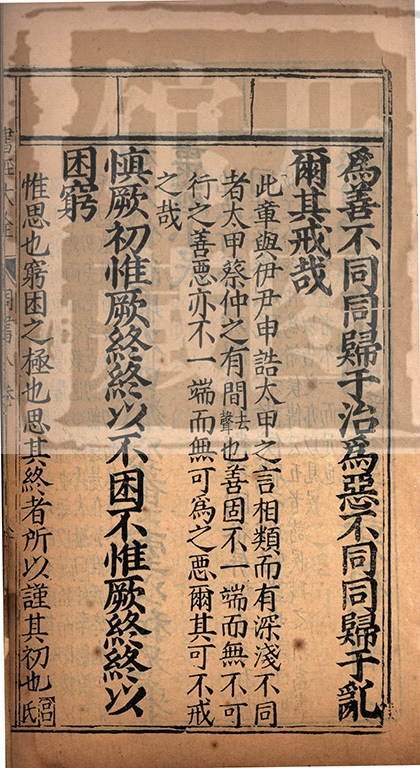 為善不同同歸于治為惡不同同歸于亂
爾其戒哉
此章與伊尹申誥太甲之言相類而有深淺不同
者太甲蔡仲之有間去聲也善固不一端而無不可
行之善惡亦不一端而無可為之惡爾其可不戒
之哉
慎厥初惟厥終終以不困不惟厥終終以
困窮
惟思也窮困之極也思其終者所以謹其初也呂氏
書經大全
周書八卷